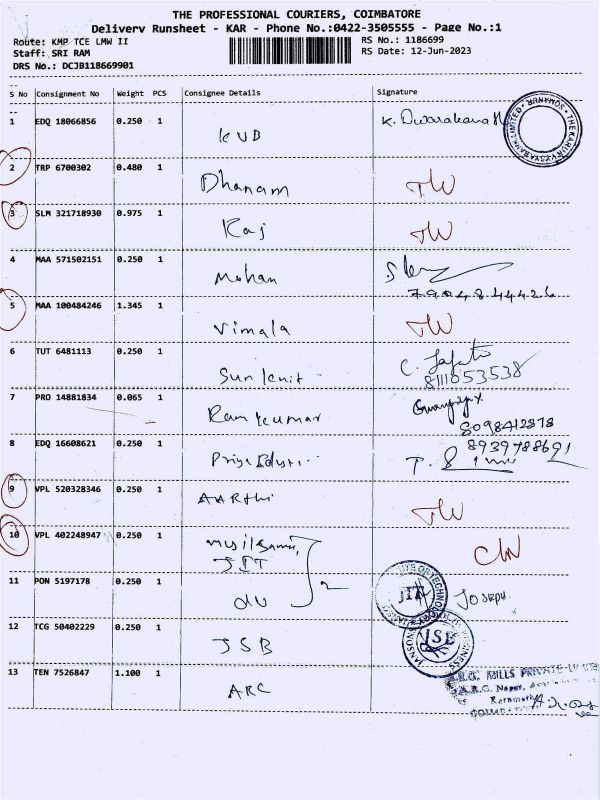 THE PROFESSIONAL COURIERS, COIMBATORE
Delivery Runsheet - KAR - Phone No.:0422-3505555 - Page No.:1
Route: KMP TCE LMW II
RS No.: 1186699
Staff: SRI RAM
RS Date: 12-Jun-2023
DRS No.: DCJB118669901
S No Consignment No Weight PCS Consignee Details Signature
1 EDQ 18066856 0.250 1
KVB K. Dwarakana
2 TRP 6700302 0.480 1
Dhanam
3 SLM 321718930 0.975 1
Raj
4 MAA 571502151 0.250 1
Mohan
79048 44426
5 MAA 100484246 1.345 1
Vimala
6 TUT 6481113 0.250 1
8111053538
7 PRO 14881834 0.065 1
Ram kumar
8098412378
8 EDQ 16608621 0.250 1
8939788691
Priya
9 VPL 520328346 0.250 1
AARthi
10 VPL 402248947 0.250 1
JIT
11 PON 5197178 0.250 1
du 2 JIT Joseph
12 TCG 50402229 0.250 1
JSB JSB
13 TEN 7526847 1.100 1
ARC
MILLS PRIVATE